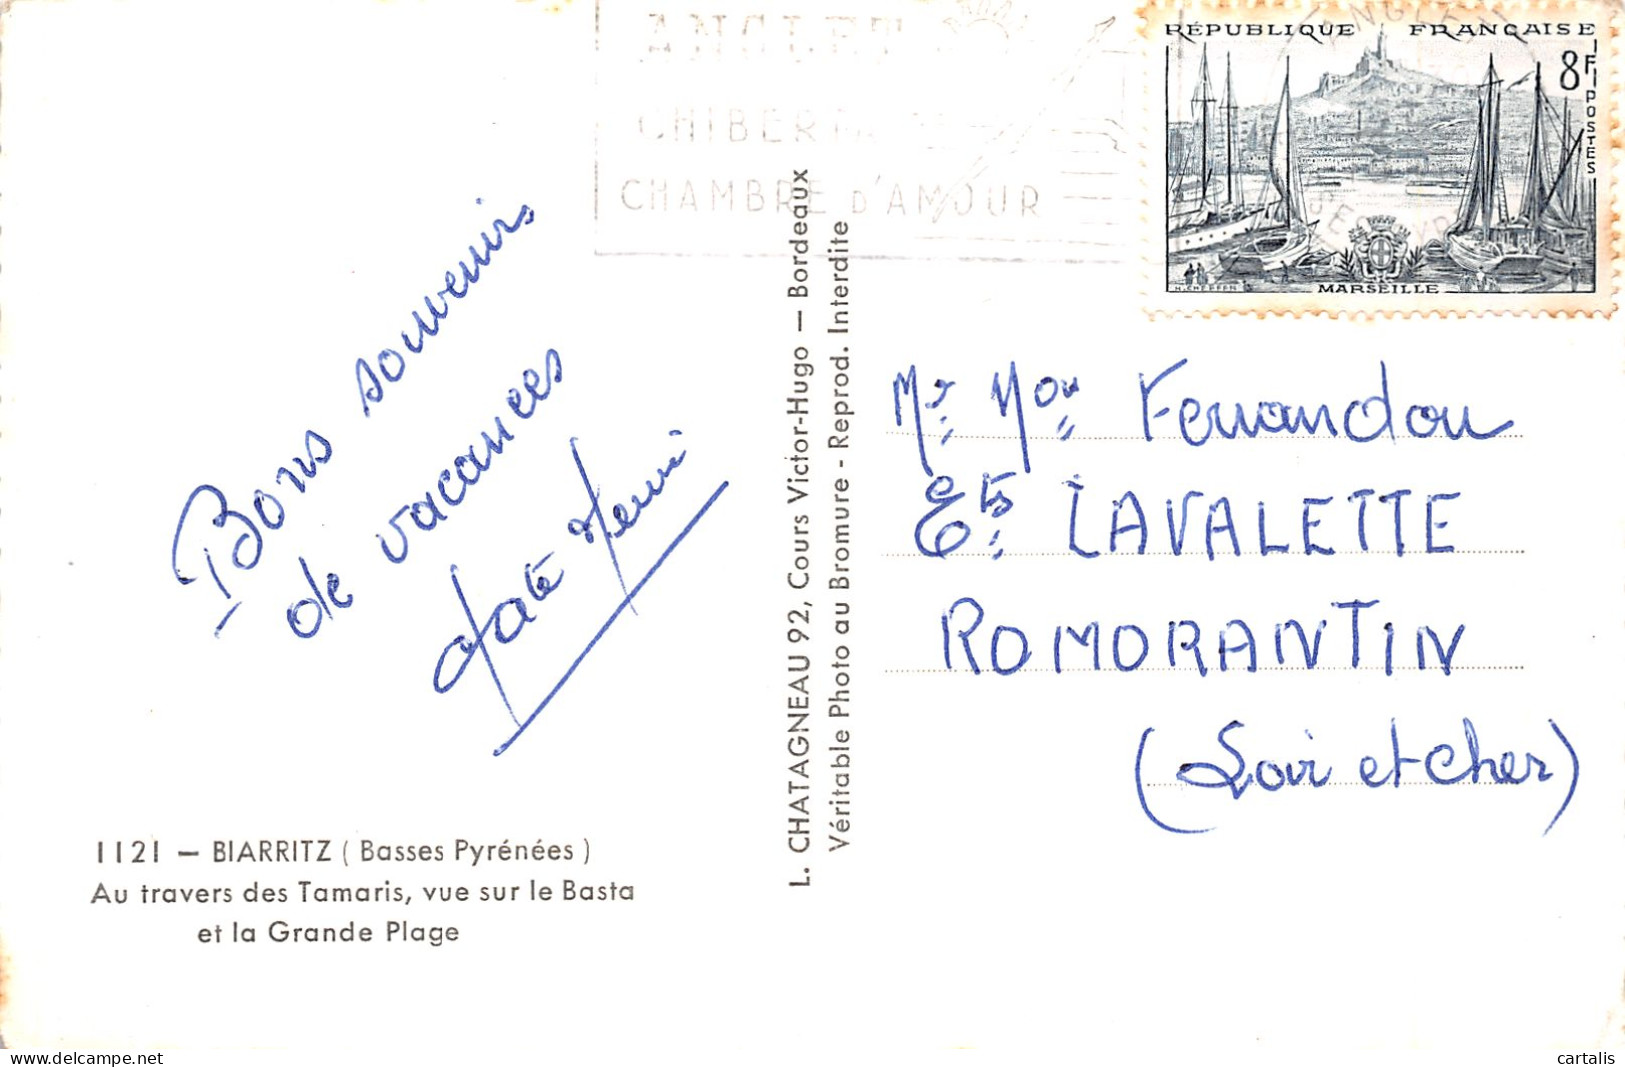 ANGLET
CHIBERTA
CHAMBRE D'AMOUR
RÉPUBLIQUE FRANÇAISE
8F
POSTES
MARSEILLE
Bons souvenirs
de vacances
L. CHATAGNEAU 92, Cours Victor-Hugo — Bordeaux
Véritable Photo au Bromure - Reprod. Interdite
Mr
Ets LAVALETTE
ROMORANTIN
(Loir et cher)
1121 — BIARRITZ ( Basses Pyrénées )
Au travers des Tamaris, vue sur le Basta
et la Grande Plage
delcampe.net
cartalis